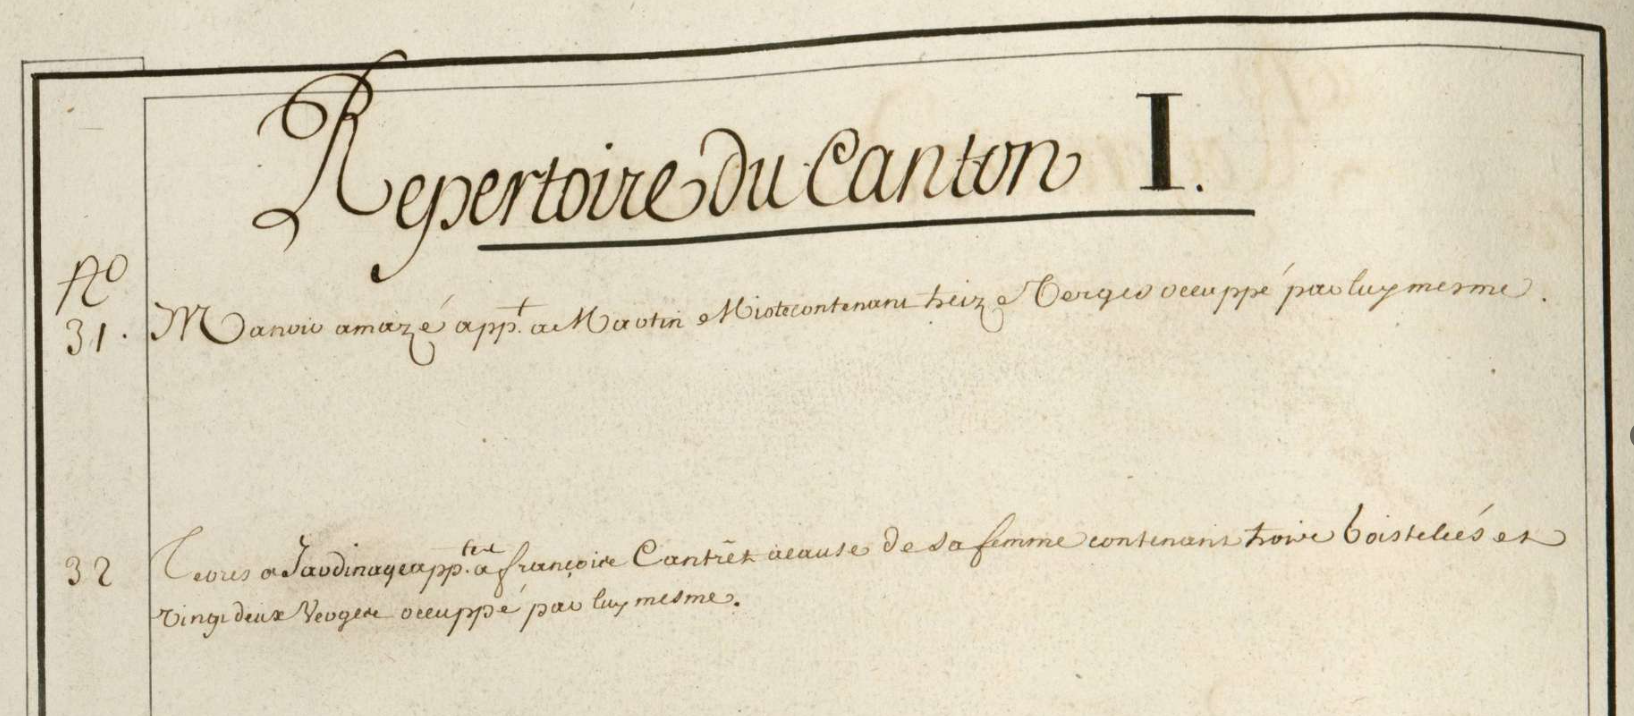 Repertoire Du Canton I.
No
31. Manoir amazé appt. a Martin Miote contenant treize Verges occuppé par luy mesme.
32 Terres a Jardinage app.tes a françoise Cantrêt acause de sa femme contenant trois boistelées et
vingt deux Verges occuppé par luy mesme.